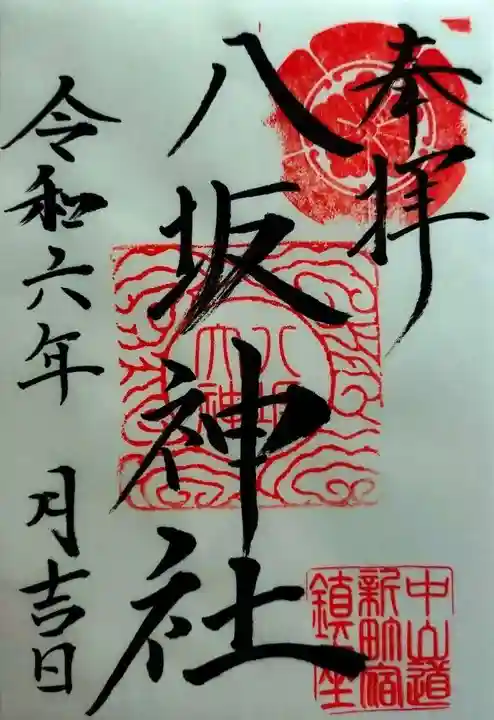 奉拝
八坂神社
八坂
大神
中山道
新町宿
鎮座
令和六年 月吉日